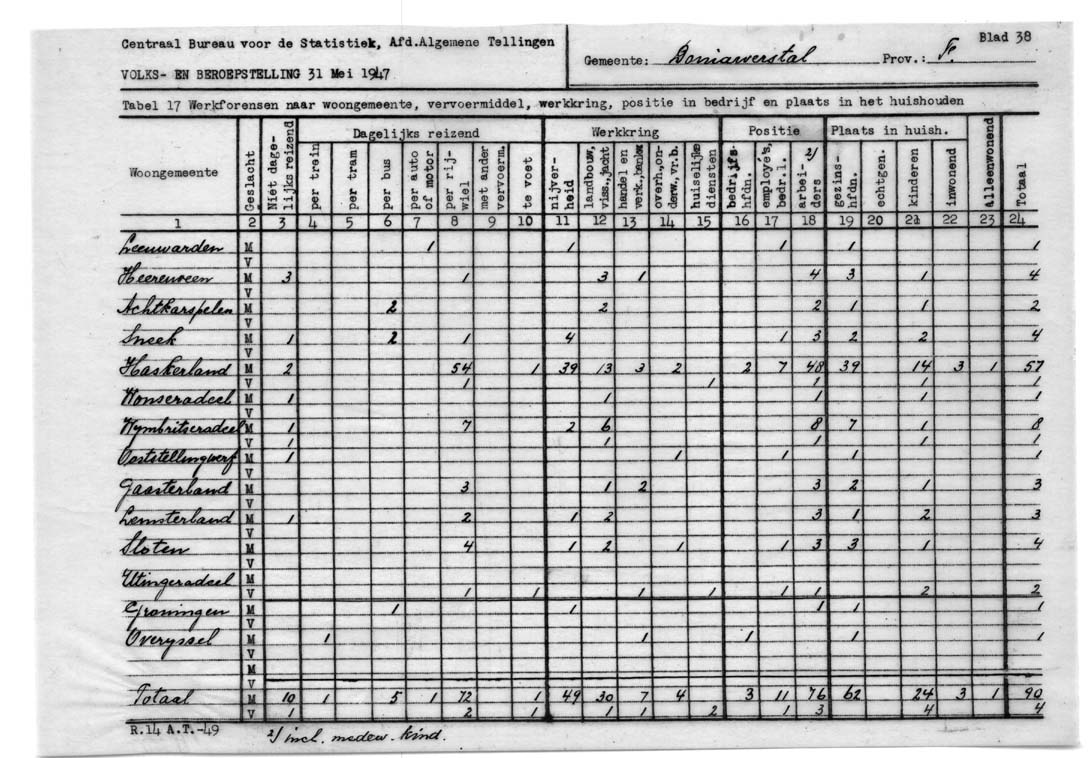 Centraal Bureau voor de Statistiek, Afd.Algemene Tellingen
VOLKS- EN BEROEPSTELLING 31 Mei 1947
Gemeente: Doniawerstal Prov.: Fr.
Blad 38
Tabel 17 Werkforensen naar woongemeente, vervoermiddel, werkkring, positie in bedrijf en plaats in het huishouden
Woongemeente
Geslacht
Niet dage-
lijks reizend
Dagelijks reizend
per trein
per tram
per bus
per auto
of motor
per rij-
wiel
met ander
vervoerm.
te voet
Werkkring
nijver-
heid
landbouw,
viss., jacht
handel en
verk., bankw
overh., on-
derw., vr.b.
huiselijke
diensten
Positie
bedrijfs-
hfdn.
employé's,
bedr.l.
2)
arbei-
ders
Plaats in huish.
gezins-
hfdn.
echtgen.
kinderen
inwonend
alleenwonend
Totaal
1 2 3 4 5 6 7 8 9 10 11 12 13 14 15 16 17 18 19 20 21 22 23 24
Leeuwarden M 1 1 1 1 1
V
Heerenveen M 3 1 3 1 4 3 1 4
V
Achtkarspelen M 2 2 2 1 1 2
V
Sneek M 1 2 1 4 1 3 2 2 4
V
Haskerland M 2 54 1 39 13 3 2 2 7 48 39 14 3 1 57
V 1 1 1 1 1
Wonseradeel M 1 1 1 1 1
V
Wymbritseradeel M 1 7 2 6 8 7 1 8
V 1 1 1 1 1
Ooststellingwerf M 1 1 1 1 1
V
Gaasterland M 3 1 2 3 2 1 3
V
Lemsterland M 1 2 1 2 3 1 2 3
V
Sloten M 4 1 2 1 1 3 3 1 4
V
Utingeradeel M
V 1 1 1 1 1 1 2 2
Groningen M 1 1 1 1 1
V
Overyssel M 1 1 1 1 1
V
M
V
Totaal M 10 1 5 1 72 1 49 30 7 4 3 11 76 62 24 3 1 90
V 1 2 1 1 1 2 1 3 4 4
R.14 A.T.-49
2) incl. medew. kind.